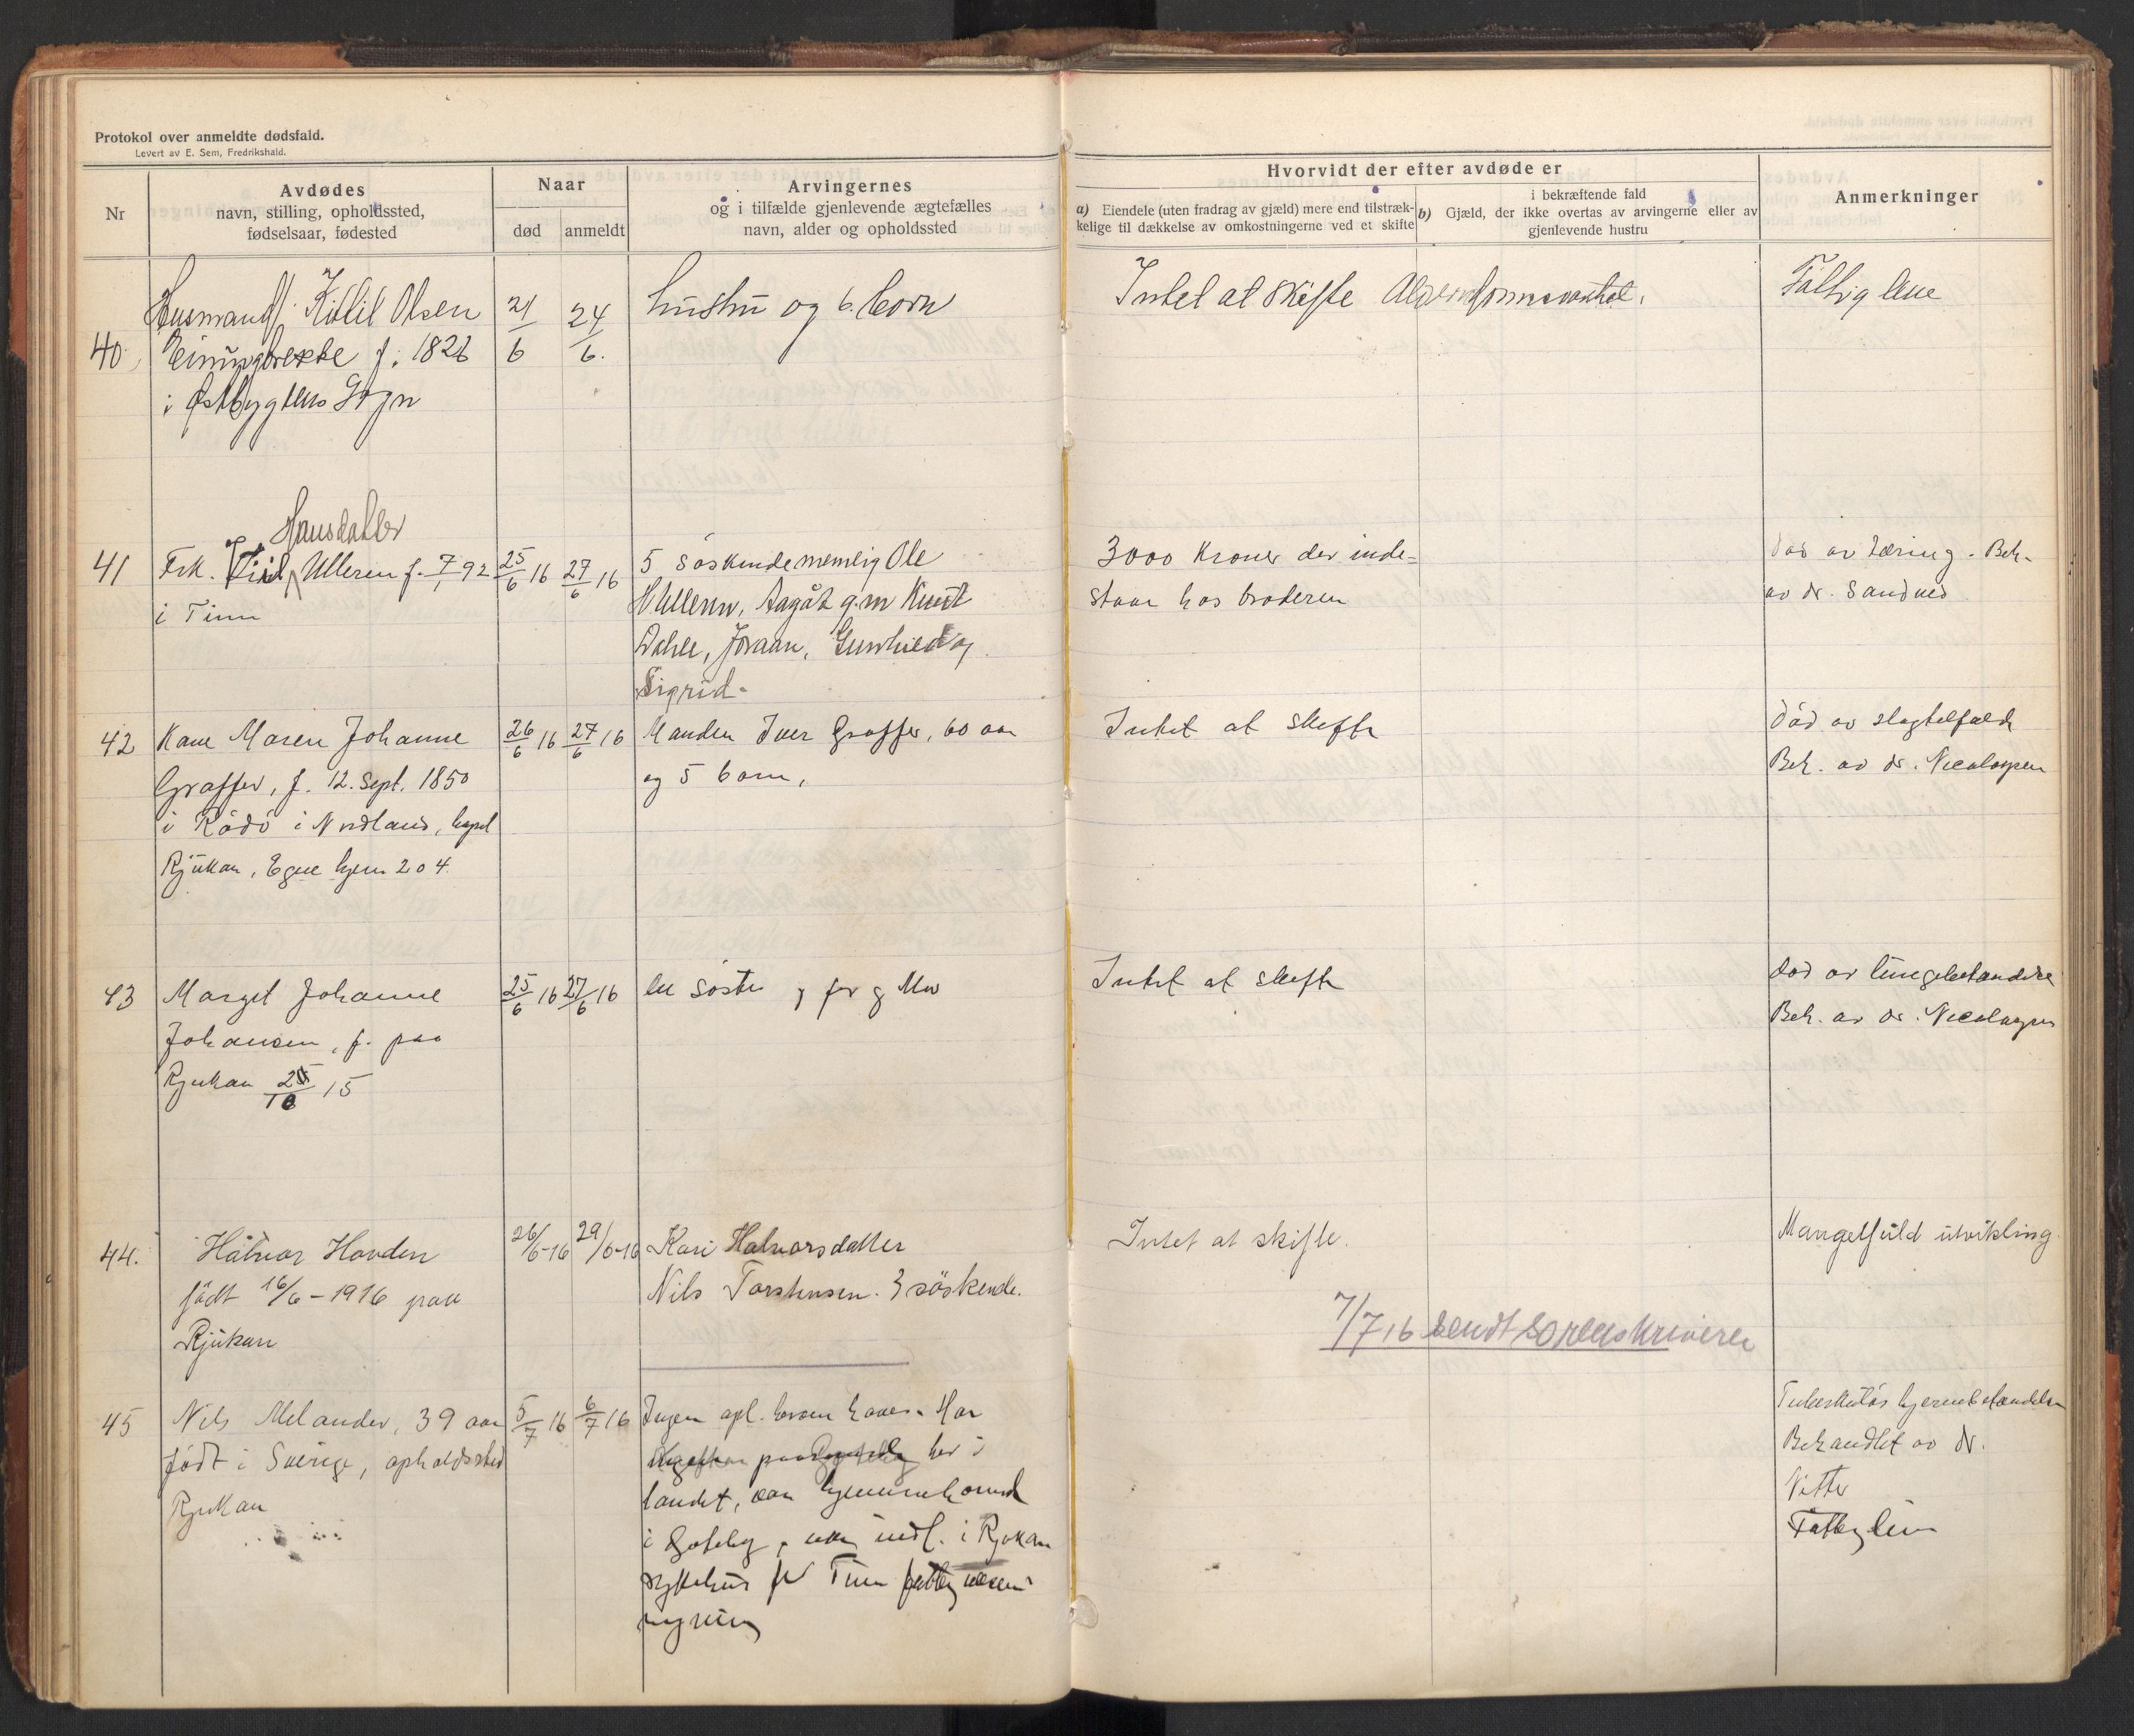 Protokol over anmeldte dødsfald.
Levert av E. Sem, Fredrikshald.
Nr
Avdødes
navn, stilling, opholdssted,
fødselsaar, fødested
Naar
død
anmeldt
Arvingernes
og i tilfælde gjenlevende ægtefælles
navn, alder og opholdssted
Hvorvidt der efter avdøde er
a) Eiendele (uten fradrag av gjæld) mere end tilstræk-
kelige til dækkelse av omkostningerne ved et skifte
i bekræftende fald
b) Gjæld, der ikke overtas av arvingerne eller av
gjenlevende hustru
Anmerkninger
40.
Husmand Kittil Olsen
f. 1826
i Østbygdens Sogn
21/6
24/6.
hustru og 6. born
Intet at skifte
Fattiglem
41
Hansdatter
Frk. Ulleren f. 7/1 92
i Tinn
25/6 16
27/6 16
5 søskende nemlig Ole
H Ulleren, Aagåt g.m Knut
Dahle, Joraan, Gunhild og
Sigrid.
3000 Kroner der inde-
staar hos broderen
Død av tæring. Beh.
av dr. Sandved
42
Kone Maren Johanne
Graffer, f. 12. sept. 1850
i Rödö i Nordland, bopæl
Rjukan, Egne hjem 204
26/6 16
27/6 16
Manden Iver Graffer, 60 aar
og 5 barn,
Intet at skifte
Död av slagtilfælde
Beh. av dr. Nicolaysen
43
Margit Johanne
Johansen, f. paa
Rjukan 25/10 15
25/6 16
27/6 16
en søster far og Mor
Intet at skifte
død av lungebetændelse
Beh. av dr. Nicolaysen
44.
Halvor Hovden
födt 16/6 - 1916 paa
Rjukan
26/6-16
29/6-16
Kari Halvorsdatter
Nils Torstensen. 3 söskende.
Intet at skifte.
Mangelfuld utvikling.
7/7 16 sendt sorenskriveren
45
Nils Melander, 39 aar
født i Sverige, opholdssted
Rjukan
5/7 16
6/7 16
Ingen opl. herom haves. Har
her i
landet, var hjemmehørende
i Gøteborg, indl. i Rjukan
sykehus for Tinn fattigvæsens
regning
Tuberkuløs hjernebetændelse
Behandlet av dr.
Vitter
Fattiglem